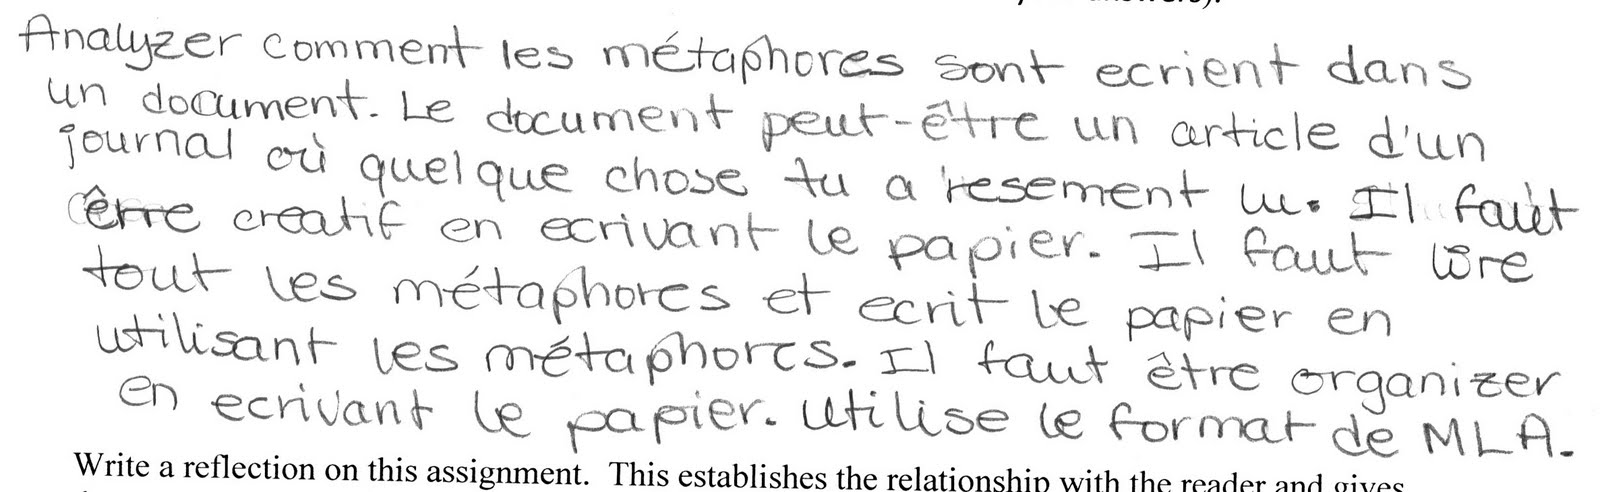 Analyzer comment les métaphores sont ecrient dans
un document. Le document peut-être un article d'un
journal où quelque chose tu a resement lu. Il faut
être creatif en ecrivant le papier. Il faut lire
tout les métaphores et ecrit le papier en
utilisant les métaphores. Il faut être organizer
en ecrivant le papier. Utilise le format de MLA.
Write a reflection on this assignment. This establishes the relationship with the reader and gives